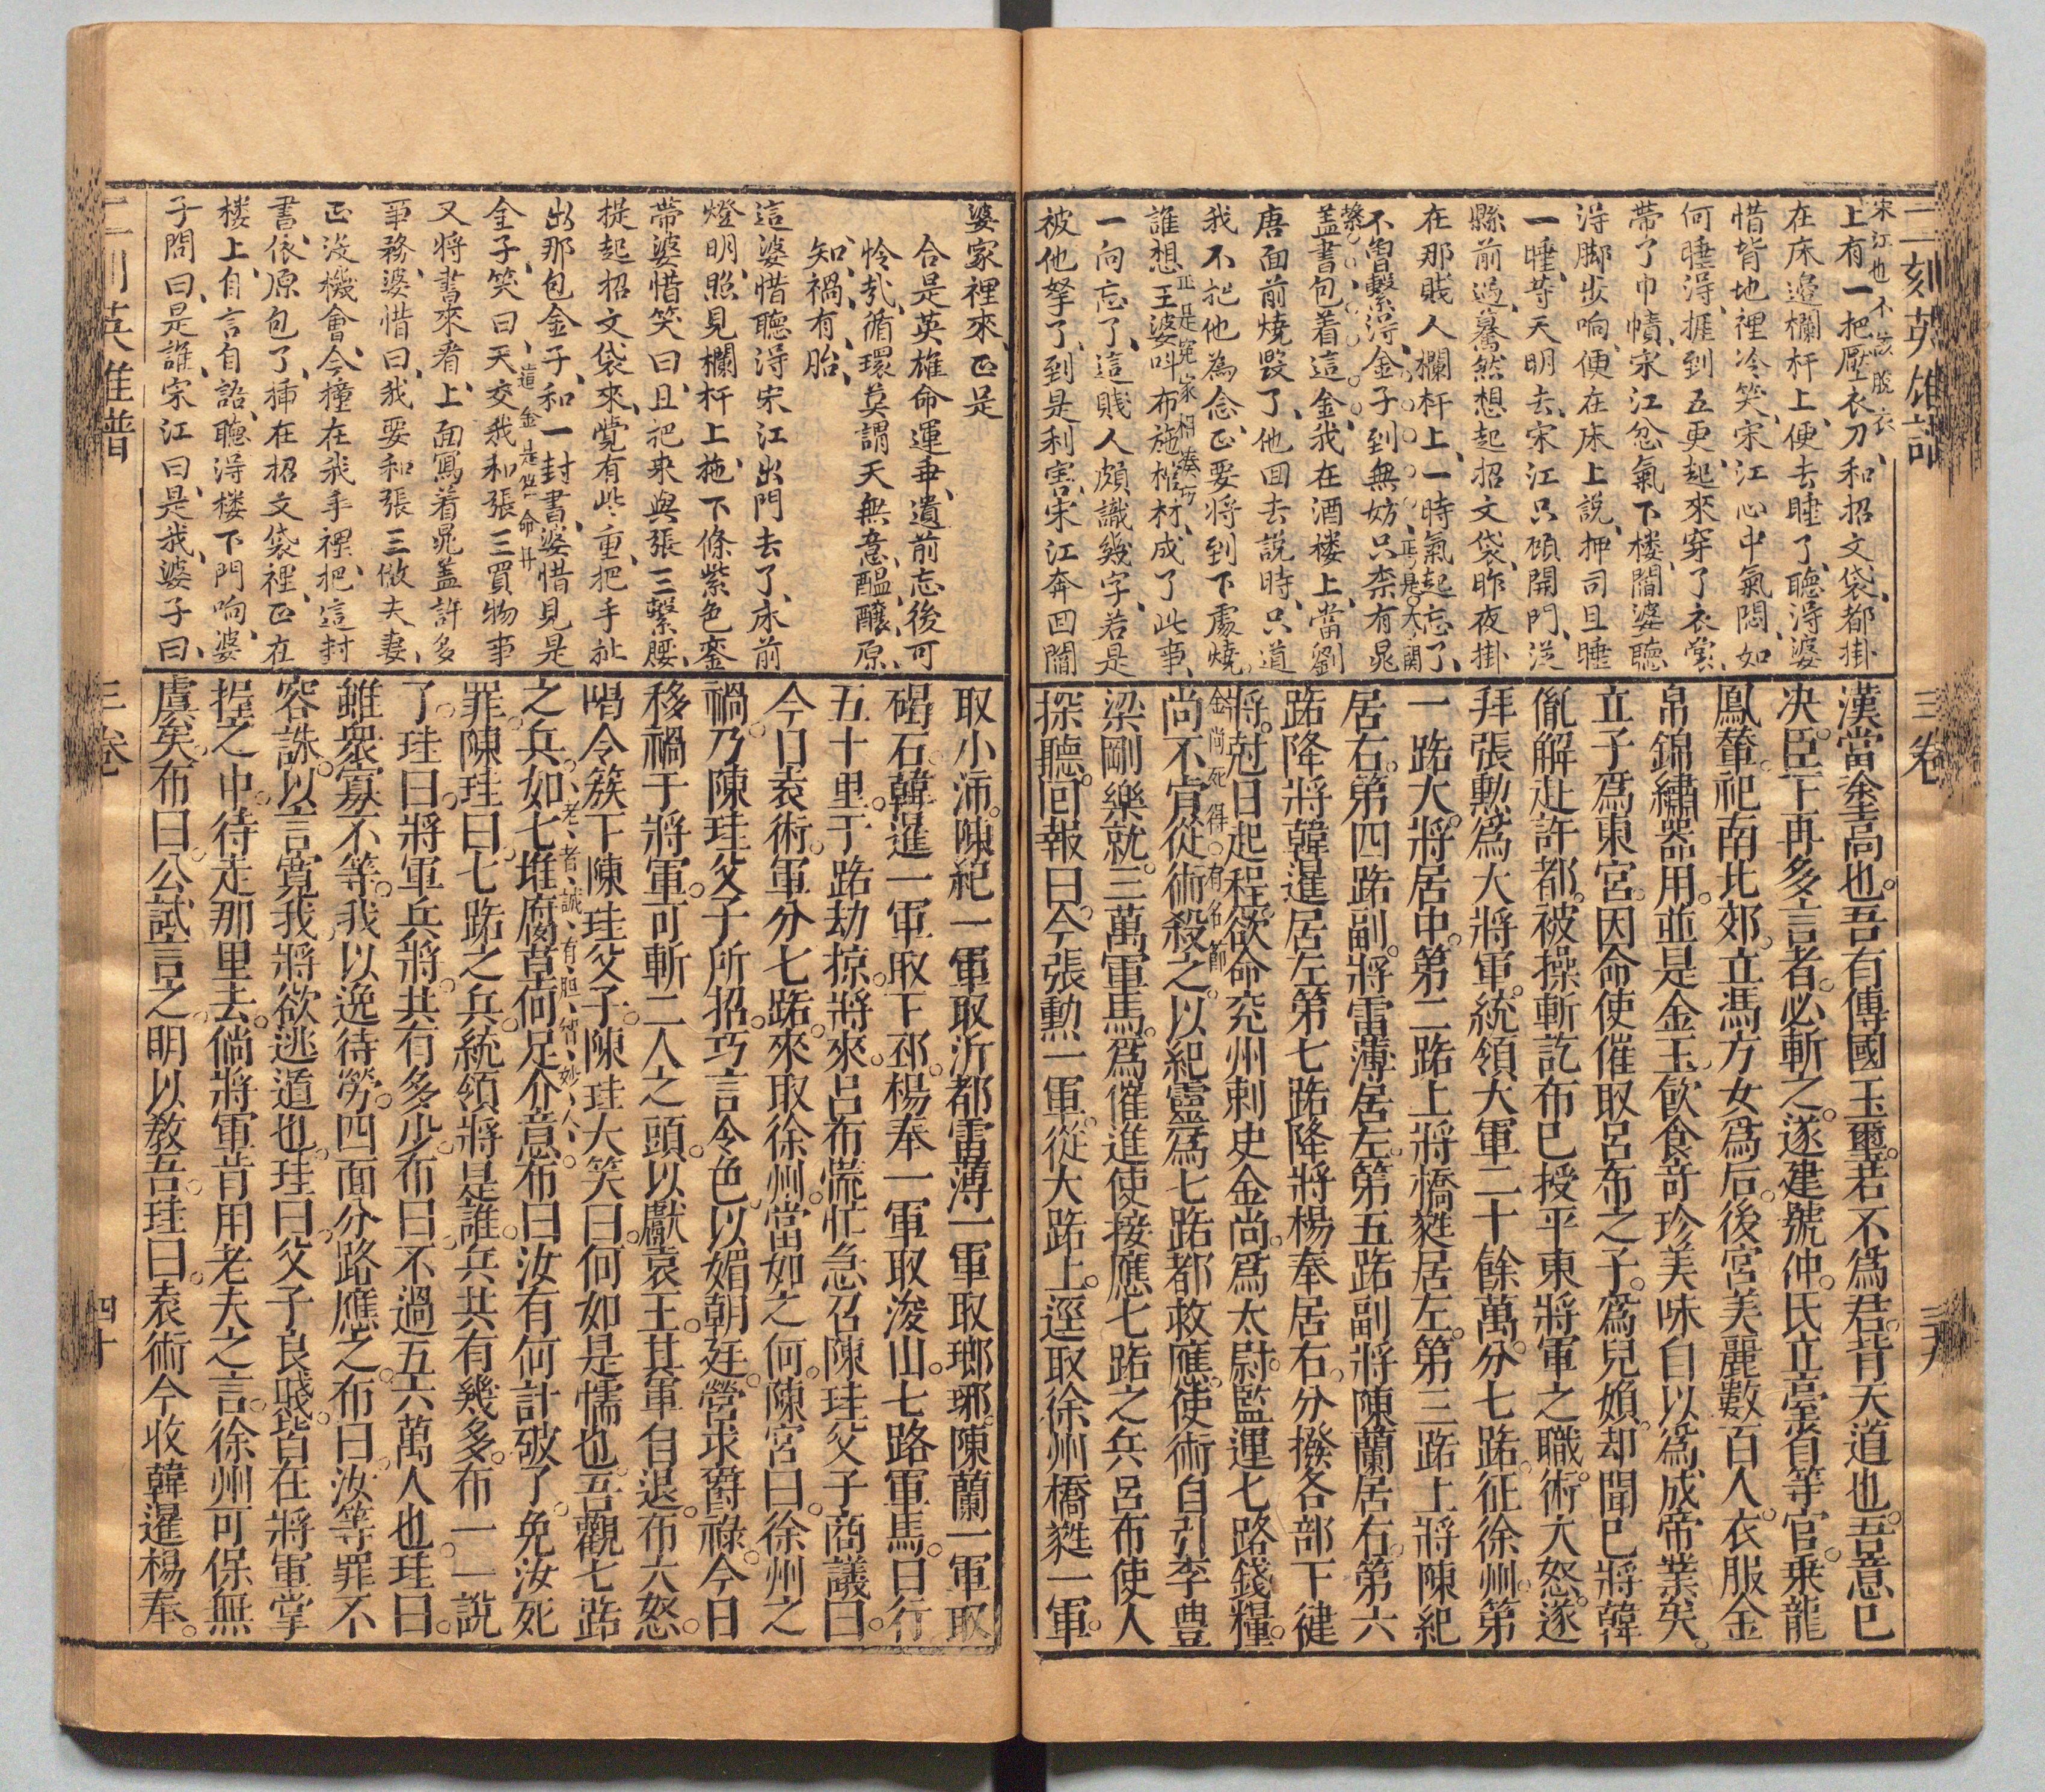 二刻英雄譜 三卷 三九
宋江也不該脫衣
上有一把壓衣刀和招文袋都掛
在床邊欄杆上便去睡了聽淂婆
惜背地裡冷笑宋江心中氣悶如
何睡淂捱到五更起來穿了衣裳
帶了巾幘宋江忿氣下樓閻婆聽
淂脚步响便在床上說押司且睡
一睡等天明去宋江只顧開門逕
縣前過驀然想起招文袋昨夜掛
在那賤人欄杆上一時氣起忘了
正是大関
不曾繫淂金子到無妨只柰有晁
盖書包着這金我在酒楼上當劉
唐面前燒毀了他囬去説時只道
我不把他為念正要將到下處燒
正是冤家相湊巧
誰想王婆叫布施棺材成了此事
一向忘了這賤人頗識幾字若是
被他拏了到是利害宋江奔囬閻
漢當塗高也吾有傳國玉璽若不爲君背天道也吾意已
決臣下再多言者必斬之遂建號仲氏立臺省等官乗龍
鳳輦祀南北郊立馮方女爲后後宮美麗數百人衣服金
帛錦繡器用並是金玉飲食奇珍美味自以爲成帝業矣
立子爲東宮因命使催取呂布之子爲兒媍却聞已將韓
胤解赴許都被操斬訖布已授平東將軍之職術大怒遂
拜張勳爲大將軍統領大軍二十餘萬分七路征徐州第
一路大將居中第二路上將橋蕤居左第三路上將陳紀
居右第四路副將雷薄居左第五路副將陳蘭居右第六
路降將韓暹居左第七路降將楊奉居右分撥各部下健
將尅日起程欲命兖州刺史金尚爲太尉監運七路錢糧
金尚死得有名節
尚不肯從術殺之以紀靈爲七路都救應使術自引李豊
梁剛樂就三萬軍馬爲催進使接應七路之兵呂布使人
探聽回報曰今張勳一軍從大路上逕取徐州橋蕤一軍
婆家裡來正是
合是英雄命運乖遺前忘後可
怜㢤循環莫謂天無意醖釀原
知禍有胎
這婆惜聽淂宋江出門去了床前
燈明照見欄杆上拖下條紫色鸞
帶婆惜笑曰且把來與張三繫腰
提起招文袋來覺有些重把手扯
出那包金子和一封書婆惜見是
道金是催命丹
金子笑曰天交我和張三買物事
又將書來看上面冩着晁盖許多
事務婆惜曰我要和張三做夫妻
正没機會今撞在我手裡把這封
書依原包了揷在招文袋裡正在
楼上自言自語聽淂楼下門响婆
子問曰是誰宋江曰是我婆子曰
取小沛陳紀一軍取沂都雷薄一軍取瑯琊陳蘭一軍取
碣石韓暹一軍取下邳楊奉一軍取浚山七路軍馬日行
五十里于路劫掠將來呂布慌忙急召陳珪父子商議曰
今日袁術軍分七路來取徐州當如之何陳宮曰徐州之
禍乃陳珪父子所招巧言令色以媚朝廷營求爵祿今日
移禍于將軍可斬二人之頭以獻袁王其軍自退布大怒
唱令簇下陳珪父子陳珪大笑曰何如是懦也吾觀七路
老者誠有胆智妙人
之兵如七堆腐草何足介意布曰汝有何計破了免汝死
罪陳珪曰七路之兵統領將是誰兵共有幾多布一一說
了珪曰將軍兵將共有多少布曰不過五六萬人也珪曰
雖衆寡不等我以逸待勞四面分路應之布曰汝等罪不
容誅以言寛我將欲逃遁也珪曰父子良賤皆在將軍掌
握之中待走那里去倘將軍肯用老夫之言徐州可保無
虞矣布曰公試言之明以教吾珪曰袁術今收韓暹楊奉
二刻英雄譜 三卷 四十